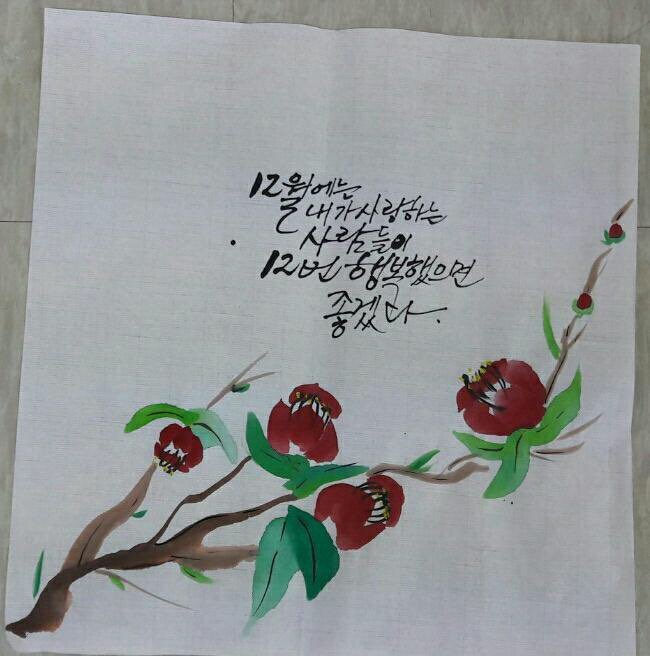 12월에는
내가사랑하는
사람들이
12번 행복했으면
좋겠다.